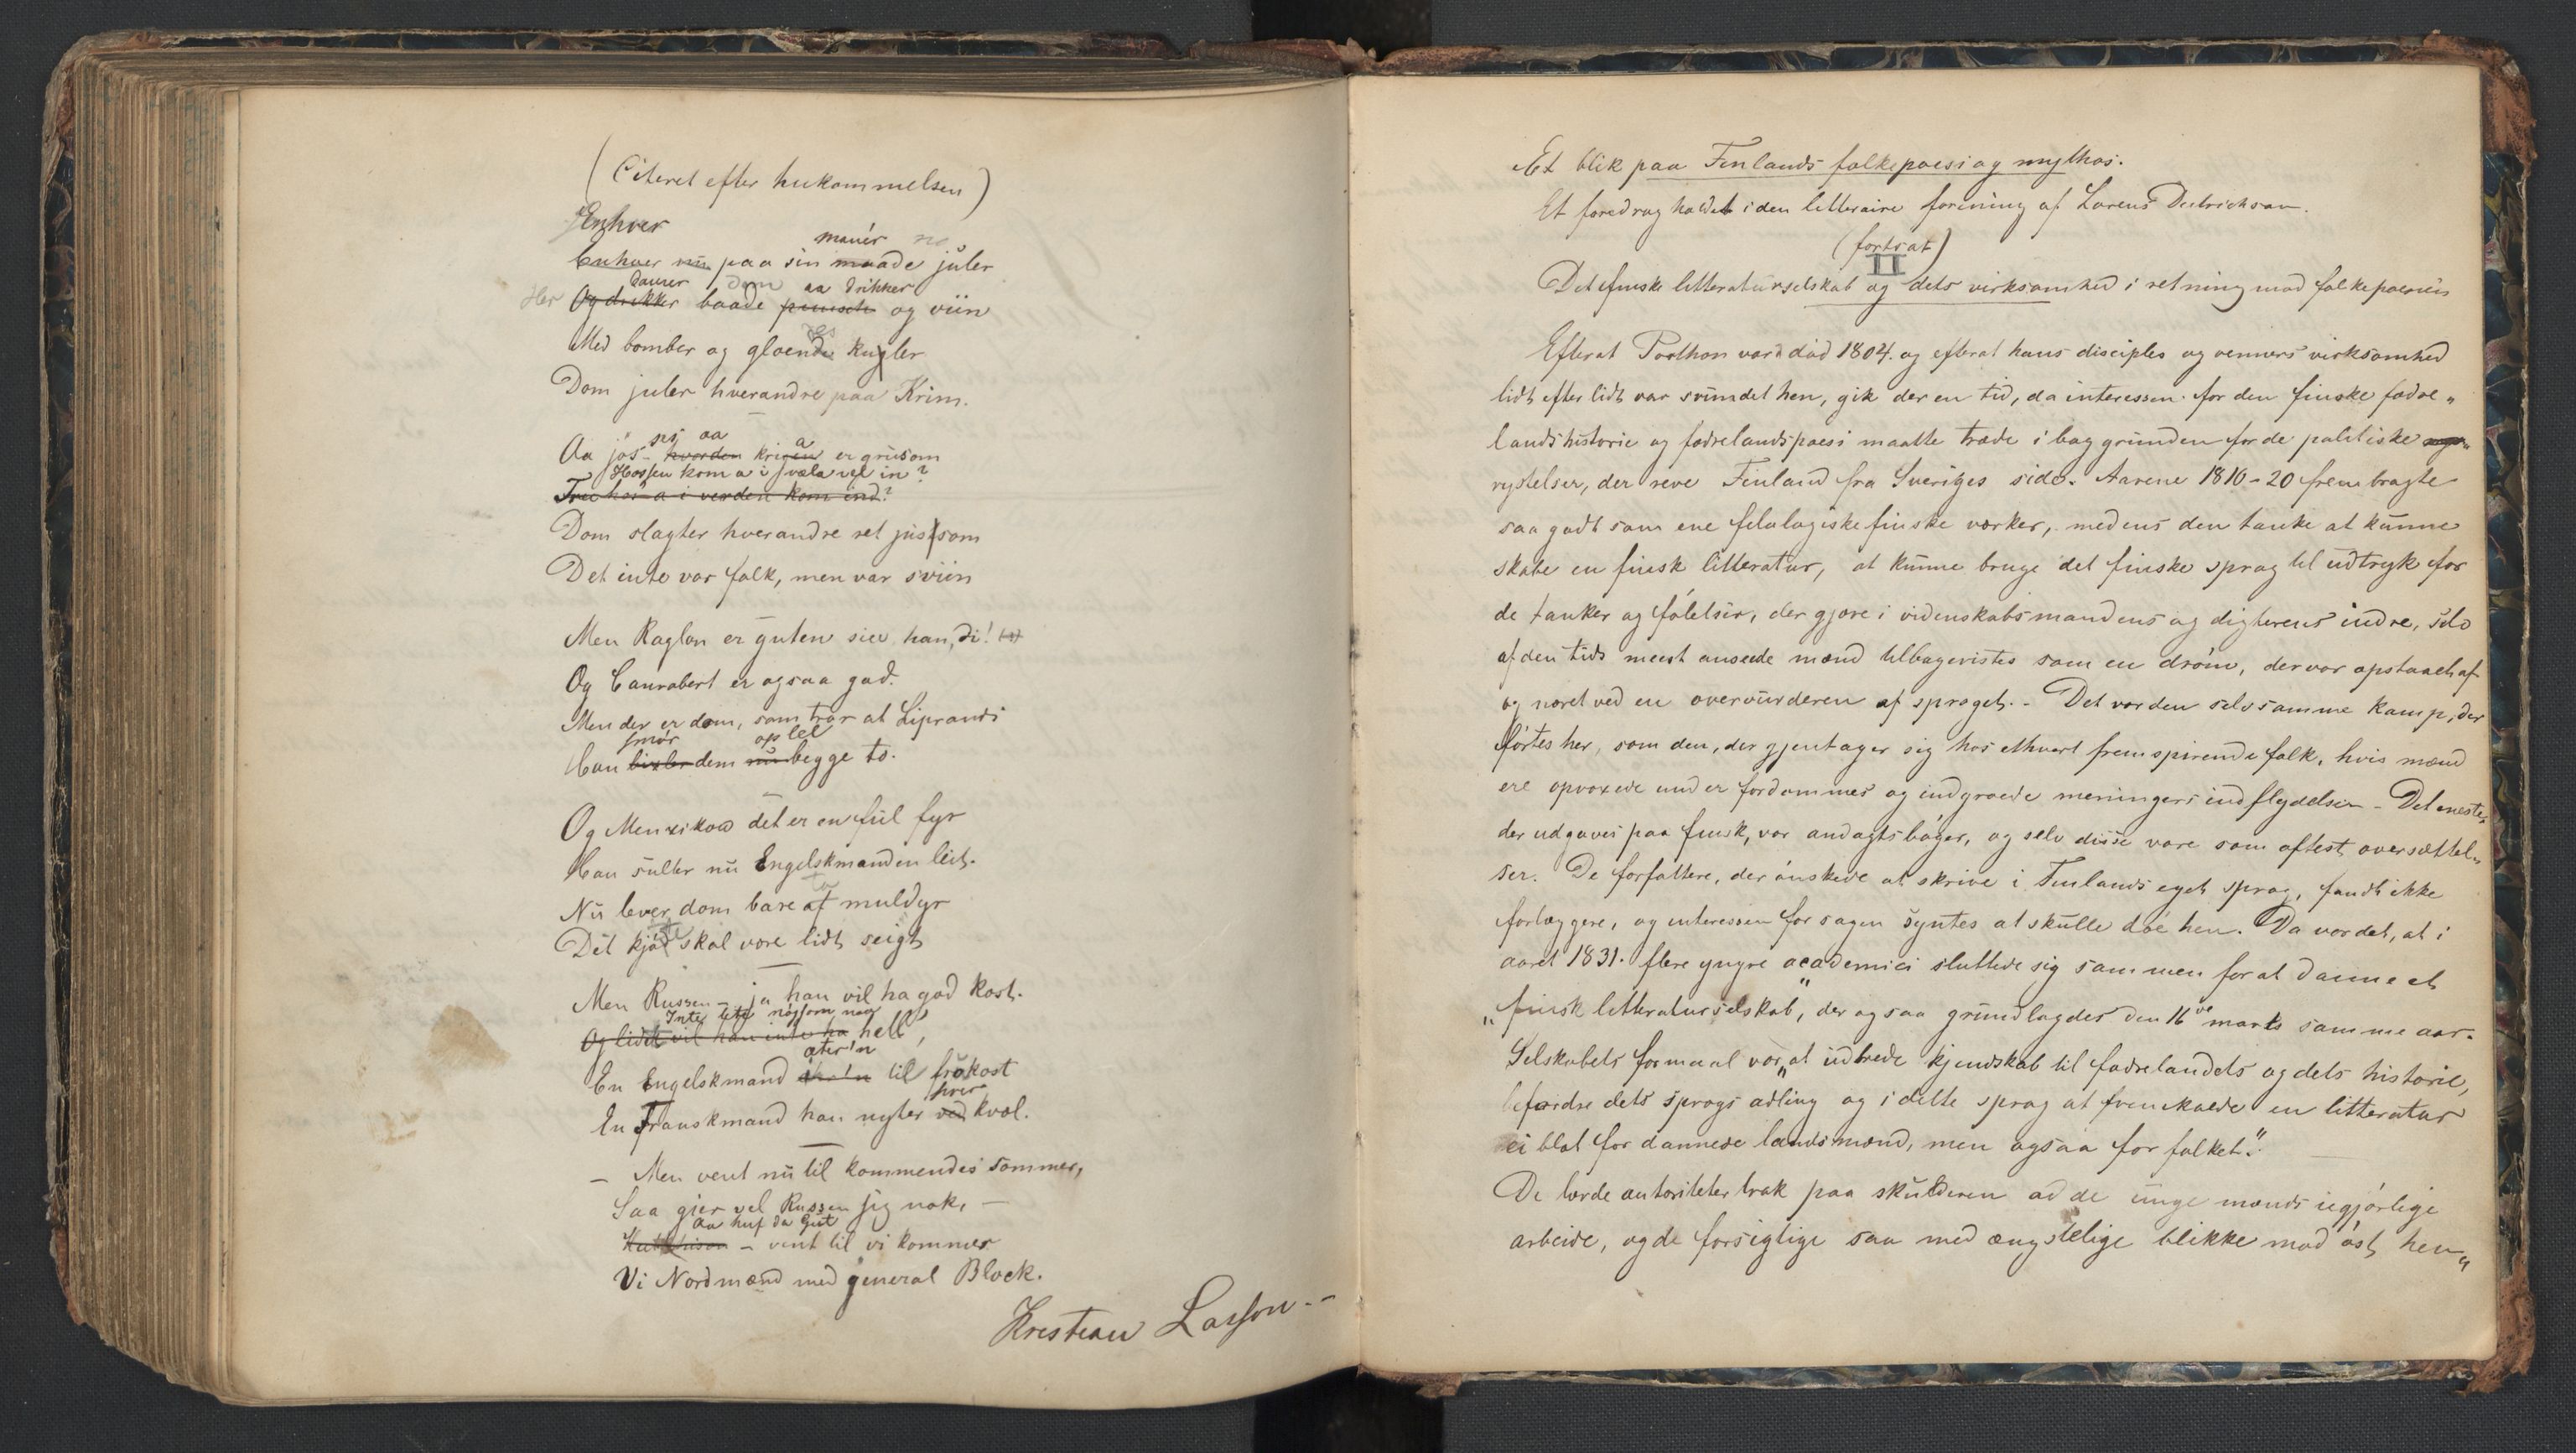 (Citeret efter hukommelsen)
Enhver
manér no
Enhver nu paa sin maade juler
danser dom aa drikker
Her Og drikker baade punsch og viin
Med bomber og gloende kugler
Dom juler hverandre paa Krim.
sej aa a
Aa jøs - hvorden krigen er grusom
Hossen kom a i væla vel in?
Tru hos a i verden kom ind?
Dom slagter hverandre ret jussom
Det inte var folk, men var sviin
Men Raglan er guten sin han, di!
Og Canrobert er ogsaa god.
Men der er dom, som tror at Liprandi
smør op lel
Han bixler dem nu begge to.
Og Menzikow det er en ful fyr
Han sulter nu Engelskmanden leit.
ta
Nu lever dom bare af muldyr
Det kjød skal være lidt seigt
Men Russen - ja han vil ha god kost.
Inte lite nøjsom naa
Og lidet vil han inte ha hell,
æter'n
En Engelskmand til frokost
hver
En Franskmand han nyter ved kvæl.
- Men vent nu til kommendes sommer,
Saa gier vel Russen sig nok, -
Aa huf da Gut
- vent til vi kommer
Vi Nordmænd med general Block.
Kristian Lasson -
Et blik paa Finlands folkepoesi og mythos.
Et foredrag holdet i den litteraire forening af Lorens Dietrichson.
(fortsat)
II
Det finske litteraturselskab og dets virksomhed i retning mod folkepoesien
Efterat Porthan vard død 1804. og efterat hans disciples og venners virksomhed
lidt efter lidt var svundet hen, gik der en tid, da interessen for den finske fædre„
landshistorie og fædrelandspoesi maatte træde i baggrunden for de politiske
rystelser, der reve Finland fra Sveriges side. Aarene 1810-20 frembragte
saa godt som ene filologiske finske værker, medens den tanke at kunne
skabe en finsk litteratur, at kunne bruge det finske sprog til udtryk for
de tanker og følelser, der gjære i videnskabsmandens og digterens indre, selv
af den tids meest ansede mænd tilbagevistes som en drøm, der var opstaaet af
og næret ved en overvurderen af sproget. - Det var den selvsamme kamp, der
førtes her, som den, der gjentager sig hos ethvert fremspirende folk, hvis mænd
ere opvoxede under fordommes og indgroede meningers indflydelser - Det eneste,
der udgaves paa finsk, var andagtsbøger, og selv disse vare som oftest oversættel„
ser. De forfattere, der ønskede at skrive i Finlands eget sprog, fandt ikke
forlæggere, og interessen for sagen syntes at skulle døe hen. Da var det, at i
aaret 1831. flere yngre academici sluttede sig sammen for at danne et
„finsk litteraturselskab", der ogsaa grundlagdes den 16de marts samme aar.
Selskabets formaal var, „at udbrede kjendskab til fædrelandets og dets historie,
befordre dets sprogs adling og i dette sprog at fremkalde en litteratur
ei blot for dannede landsmænd, men ogsaa for folket."
De lærde autoriteter trak paa skulderen ad de unge mænds ugjørlige
arbeide, og de forsigtige saa med ængstelige blikke mod øst, hen„